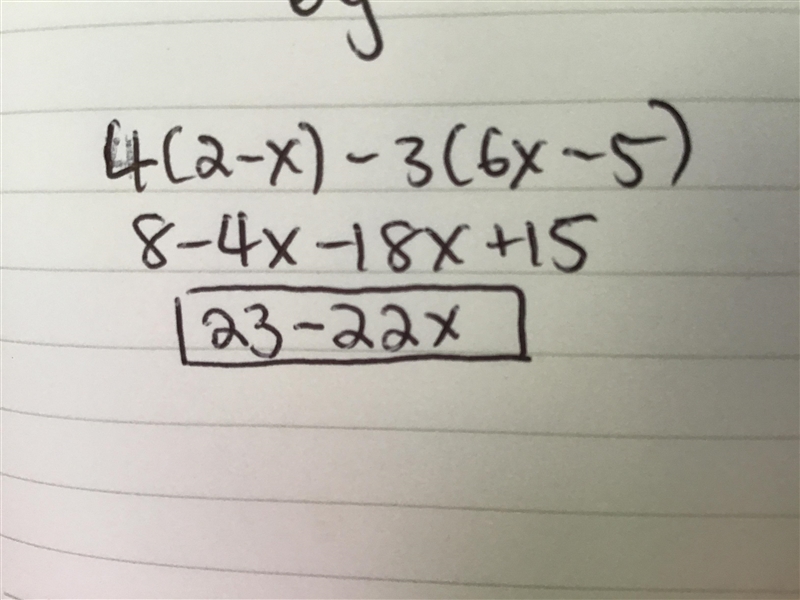 4(2-x) - 3(6x-5)
8-4x-18x+15
23-22x